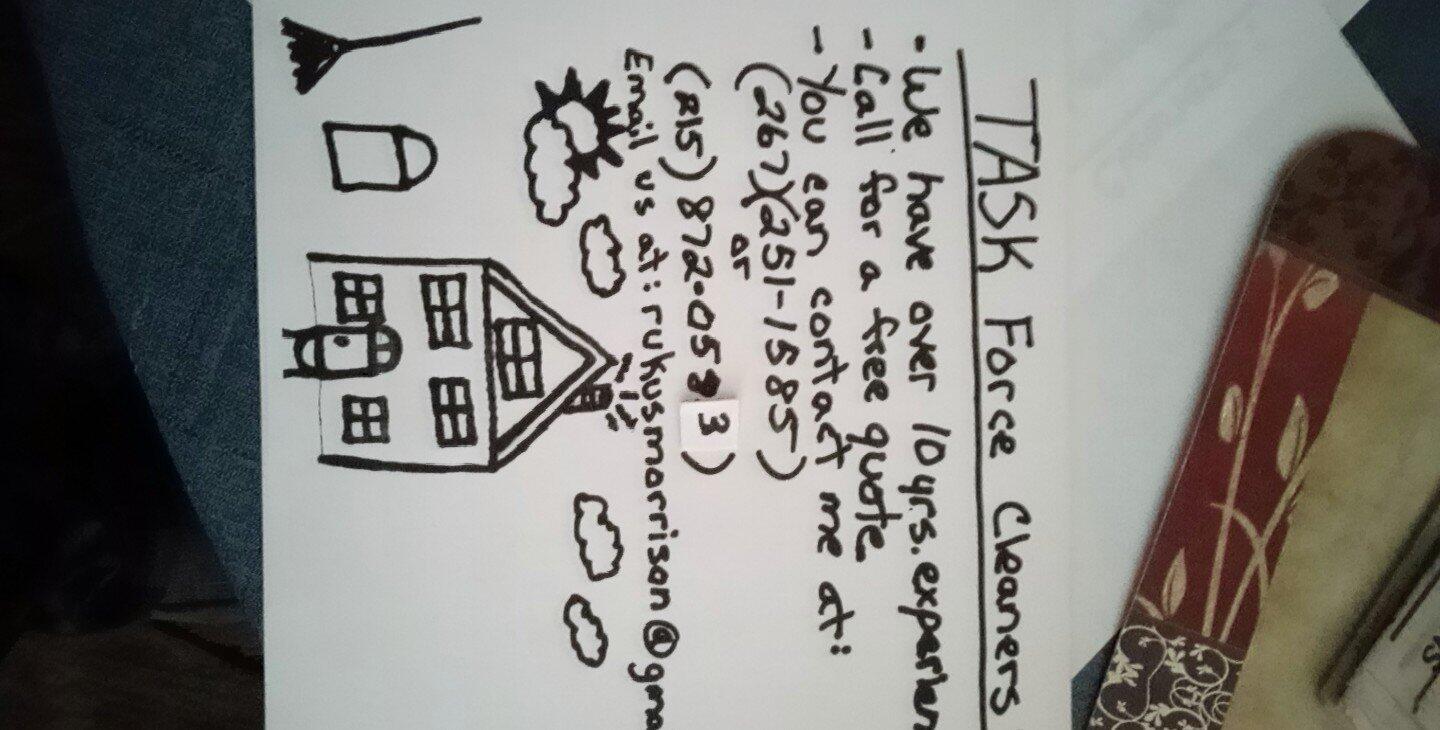 TASK Force Cleaners
- We have over 10 yrs. experien
- Call for a free quote
- You can contact me at:
(267)(251-1585)
or
(215) 872-0583)
Email us at: rukusmorrison@gma